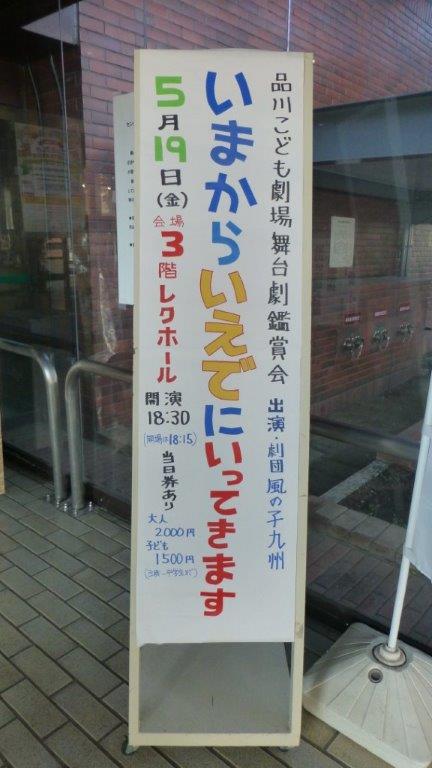 品川こども劇場舞台劇鑑賞会 出演・劇団風の子九州
いまからいえでにいってきます
5月19日(金)
会場 3階レクホール
開演
18:30
(開場は18:15)
当日券あり
大人
2000円
子ども
1500円